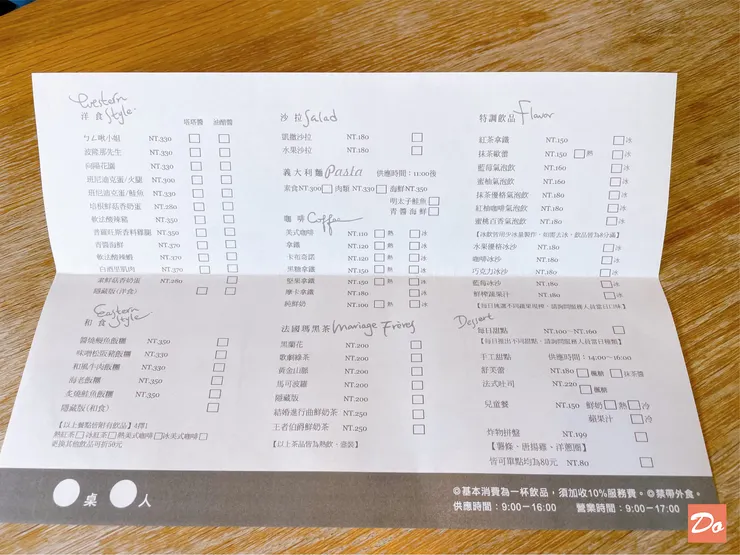 Western Style
洋食
塔塔醬 油醋醬
ㄅㄥ啾小姐 NT.330
波隆那先生 NT.330
向陽花園 NT.330
班尼迪克蛋/火腿 NT.300
班尼迪克蛋/鮭魚 NT.330
培根鮮菇香奶蛋 NT.280
軟法酸辣豬 NT.350
普羅旺斯香料雞腿 NT.350
青醬海鮮 NT.370
軟法酸辣蝦 NT.370
白酒黑肌肉 NT.370
素鮮菇香奶蛋 NT.280
隱藏版(洋食)
Eastern Style
和食
醬燒鰻魚飯糰 NT.350
味噌松阪豬飯糰 NT.330
和風牛肉飯糰 NT.330
海老飯糰 NT.350
炙燒鮭魚飯糰 NT.350
隱藏版(和食)
【以上餐點皆附有飲品】4擇1
熱紅茶 冰紅茶 熱美式咖啡 冰美式咖啡
更換其他飲品可折50元
沙拉 Salad
凱撒沙拉 NT.180
水果沙拉 NT.180
義大利麵 Pasta 供應時間：11:00後
素食NT300 肉類 NT.330 海鮮NT.350
明太子鮭魚
青醬海鮮
咖啡 Coffee
美式咖啡 NT.110 熱 冰
拿鐵 NT.140 熱 冰
卡布奇諾 NT.140 熱 冰
黑糖拿鐵 NT.150 熱 冰
堅果拿鐵 NT.160 熱 冰
摩卡拿鐵 NT.180 熱 冰
純鮮奶 NT.100 熱 冰
法國瑪黑茶 Mariage Frères
黑蘭花 NT.200
歌劇綠茶 NT.200
黃金山脈 NT.200
馬可波羅 NT.200
隱藏版 NT.200
結婚進行曲鮮奶茶 NT.250
王者伯爵鮮奶茶 NT.250
【以上茶品皆為熱飲，壺裝】
特調飲品 Flavor
紅茶拿鐵 NT.150 冰
抹茶歐蕾 NT.150 熱 冰
藍莓氣泡飲 NT.160 冰
蜜柚氣泡飲 NT.160 冰
抹茶優格氣泡飲 NT.180 冰
紅柚咖啡氣泡飲 NT.180 冰
蜜桃百香氣泡飲 NT.180 冰
水果優格冰沙 NT.180 冰
咖啡冰沙 NT.180 冰
巧克力冰沙 NT.180 冰
藍莓冰沙 NT.180 冰
鮮榨蔬果汁 NT.180 冰
Dessert
每日甜點 NT.100~NT.160
【每日推出不同甜點，請詢問服務人員當日種類】
手工甜點 供應時間：14:00~16:00
舒芙蕾 NT.180 楓糖 抹茶醬
法式吐司 NT.220 楓糖
兒童餐 NT.150 鮮奶 熱 冷
蘋果汁 冷
炸物拼盤 NT.199
【薯條、唐揚雞、洋蔥圈】
皆可單點均為80元 NT.80
桌 人
◎基本消費為一杯飲品，須加收10%服務費。◎禁帶外食。
供應時間：9:00-16:00 營業時間：9:00-17:00
Do